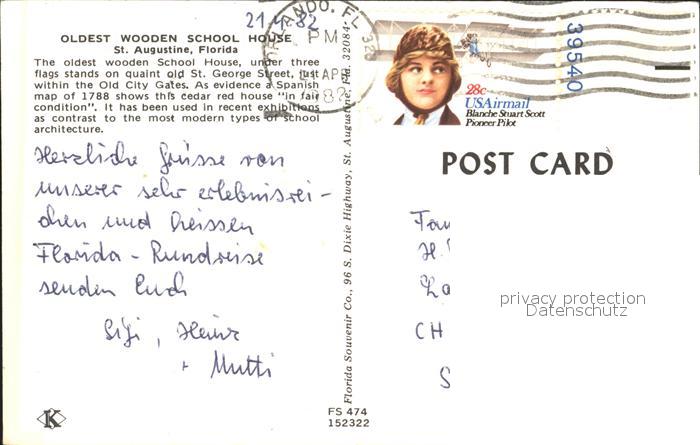 21.4.82
OLDEST WOODEN SCHOOL HOUSE
St. Augustine, Florida
The oldest wooden School House, under three
flags stands on quaint old St. George Street, just
within the Old City Gates. As evidence a Spanish
map of 1788 shows this cedar red house "in fair
condition". It has been used in recent exhibitions
as contrast to the most modern types of school
architecture.
Herzliche Grüsse von
unserer sehr erlebnisrei-
chen und heissen
Florida - Rundreise
senden Euch
Sigi, Heinz
+ Mutti
K
Florida Souvenir Co., 96 S. Dixie Highway, St. Augustine, Fla. 32084
FS 474
152322
ORLANDO, FL 328
PM
APR
28c
USAirmail
Blanche Stuart Scott
Pioneer Pilot
39540
POST CARD
Fam
H.
CH
S
privacy protection
Datenschutz